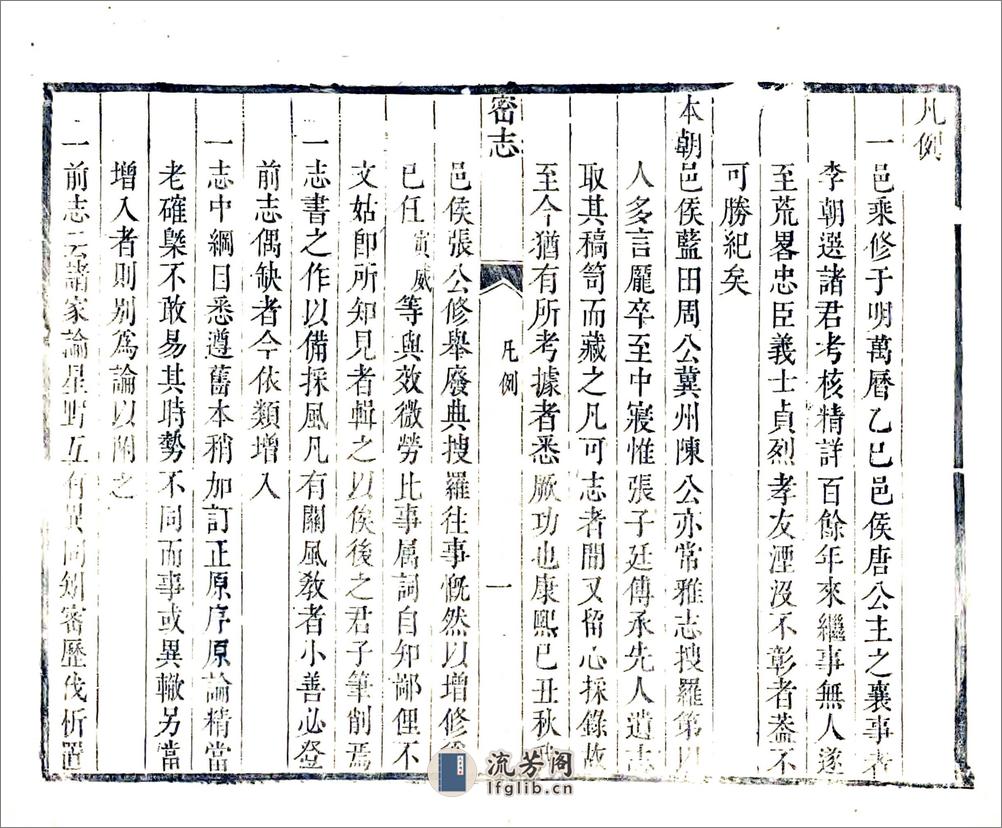 凡例
一邑乘修于明萬曆乙巳邑侯唐公主之襄事者
李朝選諸君考核精詳百餘年來繼事無人遂
至荒畧忠臣義士貞烈孝友湮沒不彰者葢不
可勝紀矣
本朝邑侯藍田周公冀州陳公亦常雅志搜羅第
人多言龐卒至中寢惟張子廷傅承先人遺
取其稿笥而藏之凡可志者間又留心採錄故
至今猶有所考據者悉厥功也康熙己丑秋
密志
凡例
一
邑侯張公修舉廢典搜羅往事慨然以增修
已任寅威等與效微勞比事属詞自知鄙俚不
文姑卽所知見者輯之以俟後之君子筆削焉
一志書之作以備採風凡有關風教者小善必登
前志偶缺者今依類增入
一志中綱目悉遵舊本稍加訂正原序原論精當
老確槩不敢易其時勢不同而事或異轍另當
增入者則别爲論以附之
一前志云諸家論星野互有異同矧密歷代析置
流芳阁
lfglib.cn